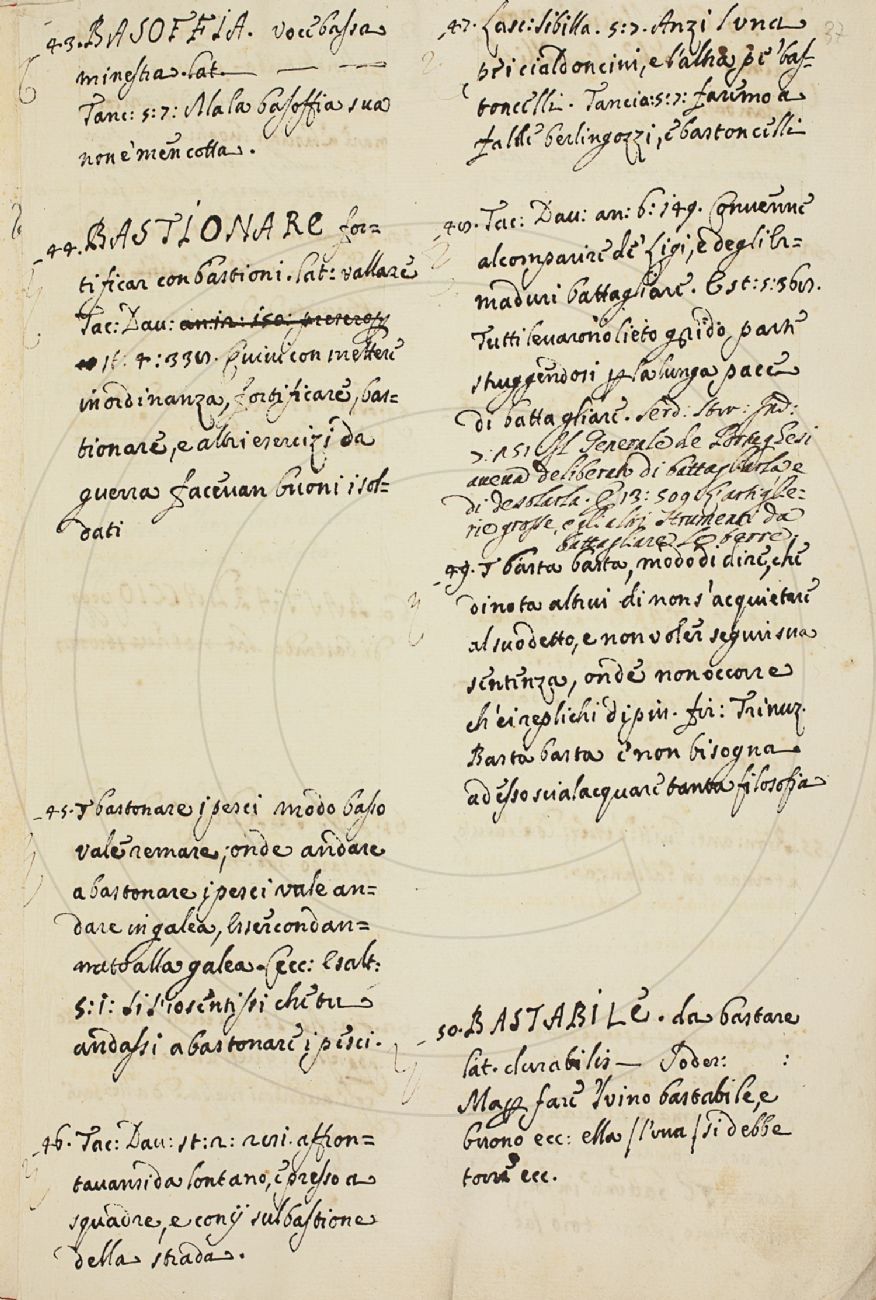 43. BASOFFIA. voce bassa
minestra. lat. — — —
Tanc: 5: 7: Ma la basoffia sua
non è men cotta.
44. BASTIONARE for=
tificar con bastioni. lat: vallare
Tac: Dau: an: 12: 150:
st: 4: 338. Quiui con mettere
in ordinanza, fortificare, bas=
tionare, e altri esercizi da
guerra faceuan buoni i sol=
dati
45. T bastonare i pesci modo basso
vale remare; onde andare
a bastonare i pesci vale an=
dare in galea, Esser condan=
nato alla galea. Cecc: Esalt:
5: 1: Si s'io sentissi che tu
andassi a bastonare i pesci.
46. Tac: Dau: st: 2: affron=
tauansi da lontano, e presso a
squadre, e conij sul bastione
della strada.
37
47. Lasc: Sibilla. 5: 7. Anzi l'una
pe i cialdoncini, e l'altra pe' bas=
toncelli. Tancia: 5: 7: faremo a
falle berlingozzi, e bastoncelli
48. Tac: Dau: an: 6: 149. Conuenne
al comparire de' Ligi, e degli Er=
maduri battagliare. E st: 5: 368.
Tutti leuarono lieto grido, parte
struggendosi p la lunga pace
di battagliare. Serd: Stor: Ind:
7: 151 Il Generale de Portoghesi
aueua deliberato di battagliarla e
di desolarla. E 13: 509 L'artiglie=
rie grosse, e gli altri strumenti da
battagliare le terre.
49. T basta basta, modo di dire, che
dinota altrui di non s'acquietare
al suo detto, e non voler seguir sua
sentenza, onde non occorre
ch'ei replichi di piu. fir: Trinuz.
Basta basta e' non bisogna
adesso scialacquare tanta filosofia
50. BASTABILE. da bastare
lat. durabilis — Soder: :
Magg fare 'l vino bastabile, e
buono ecc: ella /l'uua/ si debbe
torre ecc.